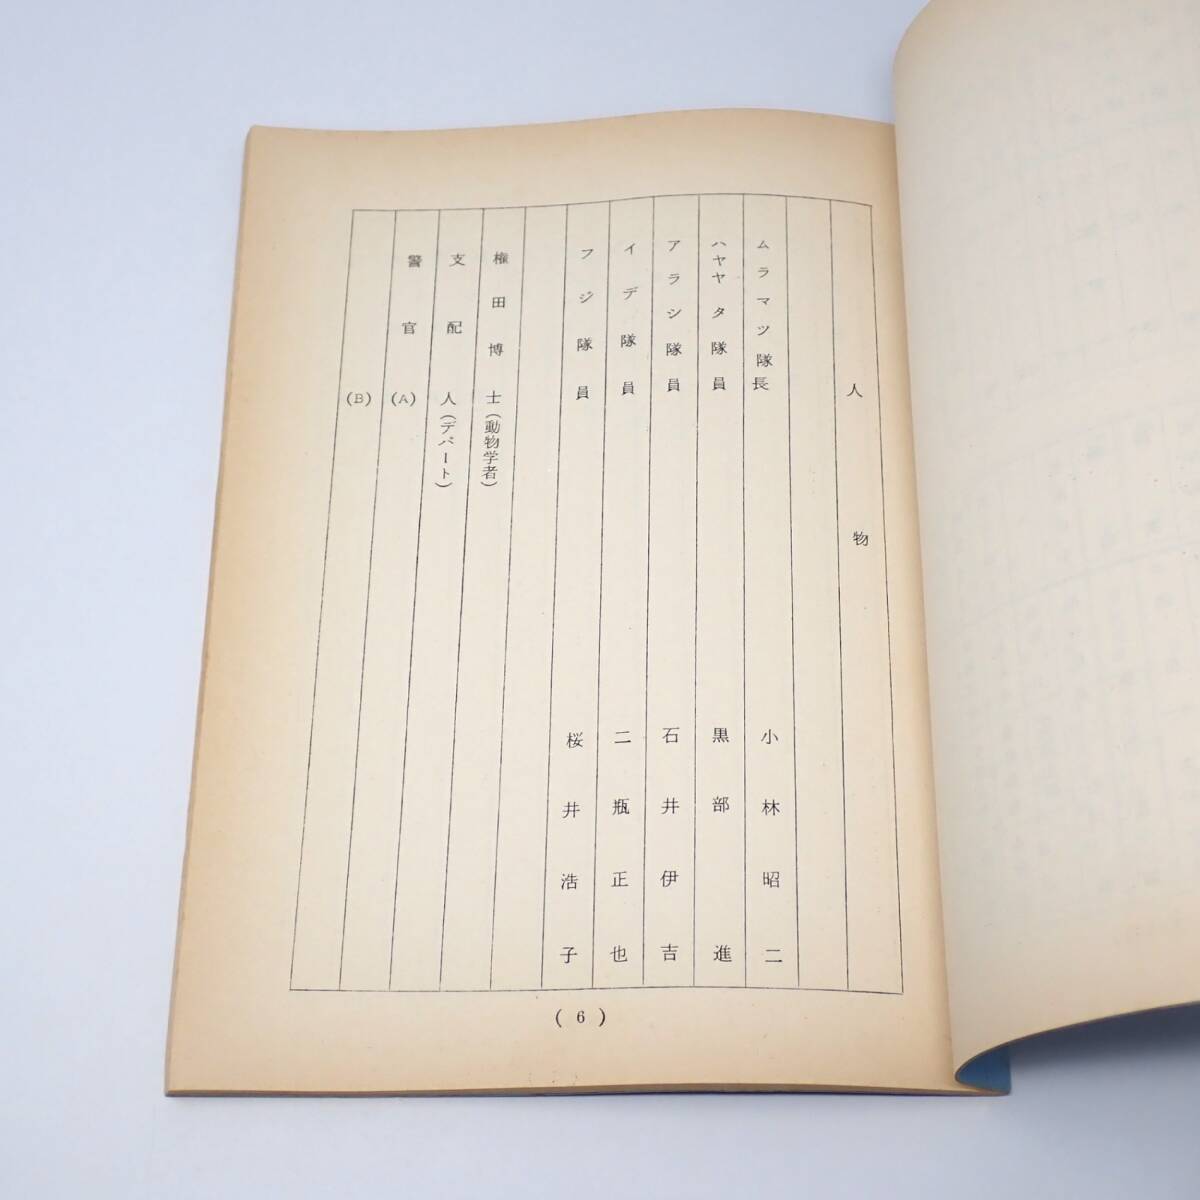 人物
ムラマツ隊長 小林昭二
ハヤタ隊員 黒部進
アラシ隊員 石井伊吉
イデ隊員 二瓶正也
フジ隊員 桜井浩子
権田博士(動物学者)
支配人(デパート)
警官(A)
(B)
(6)